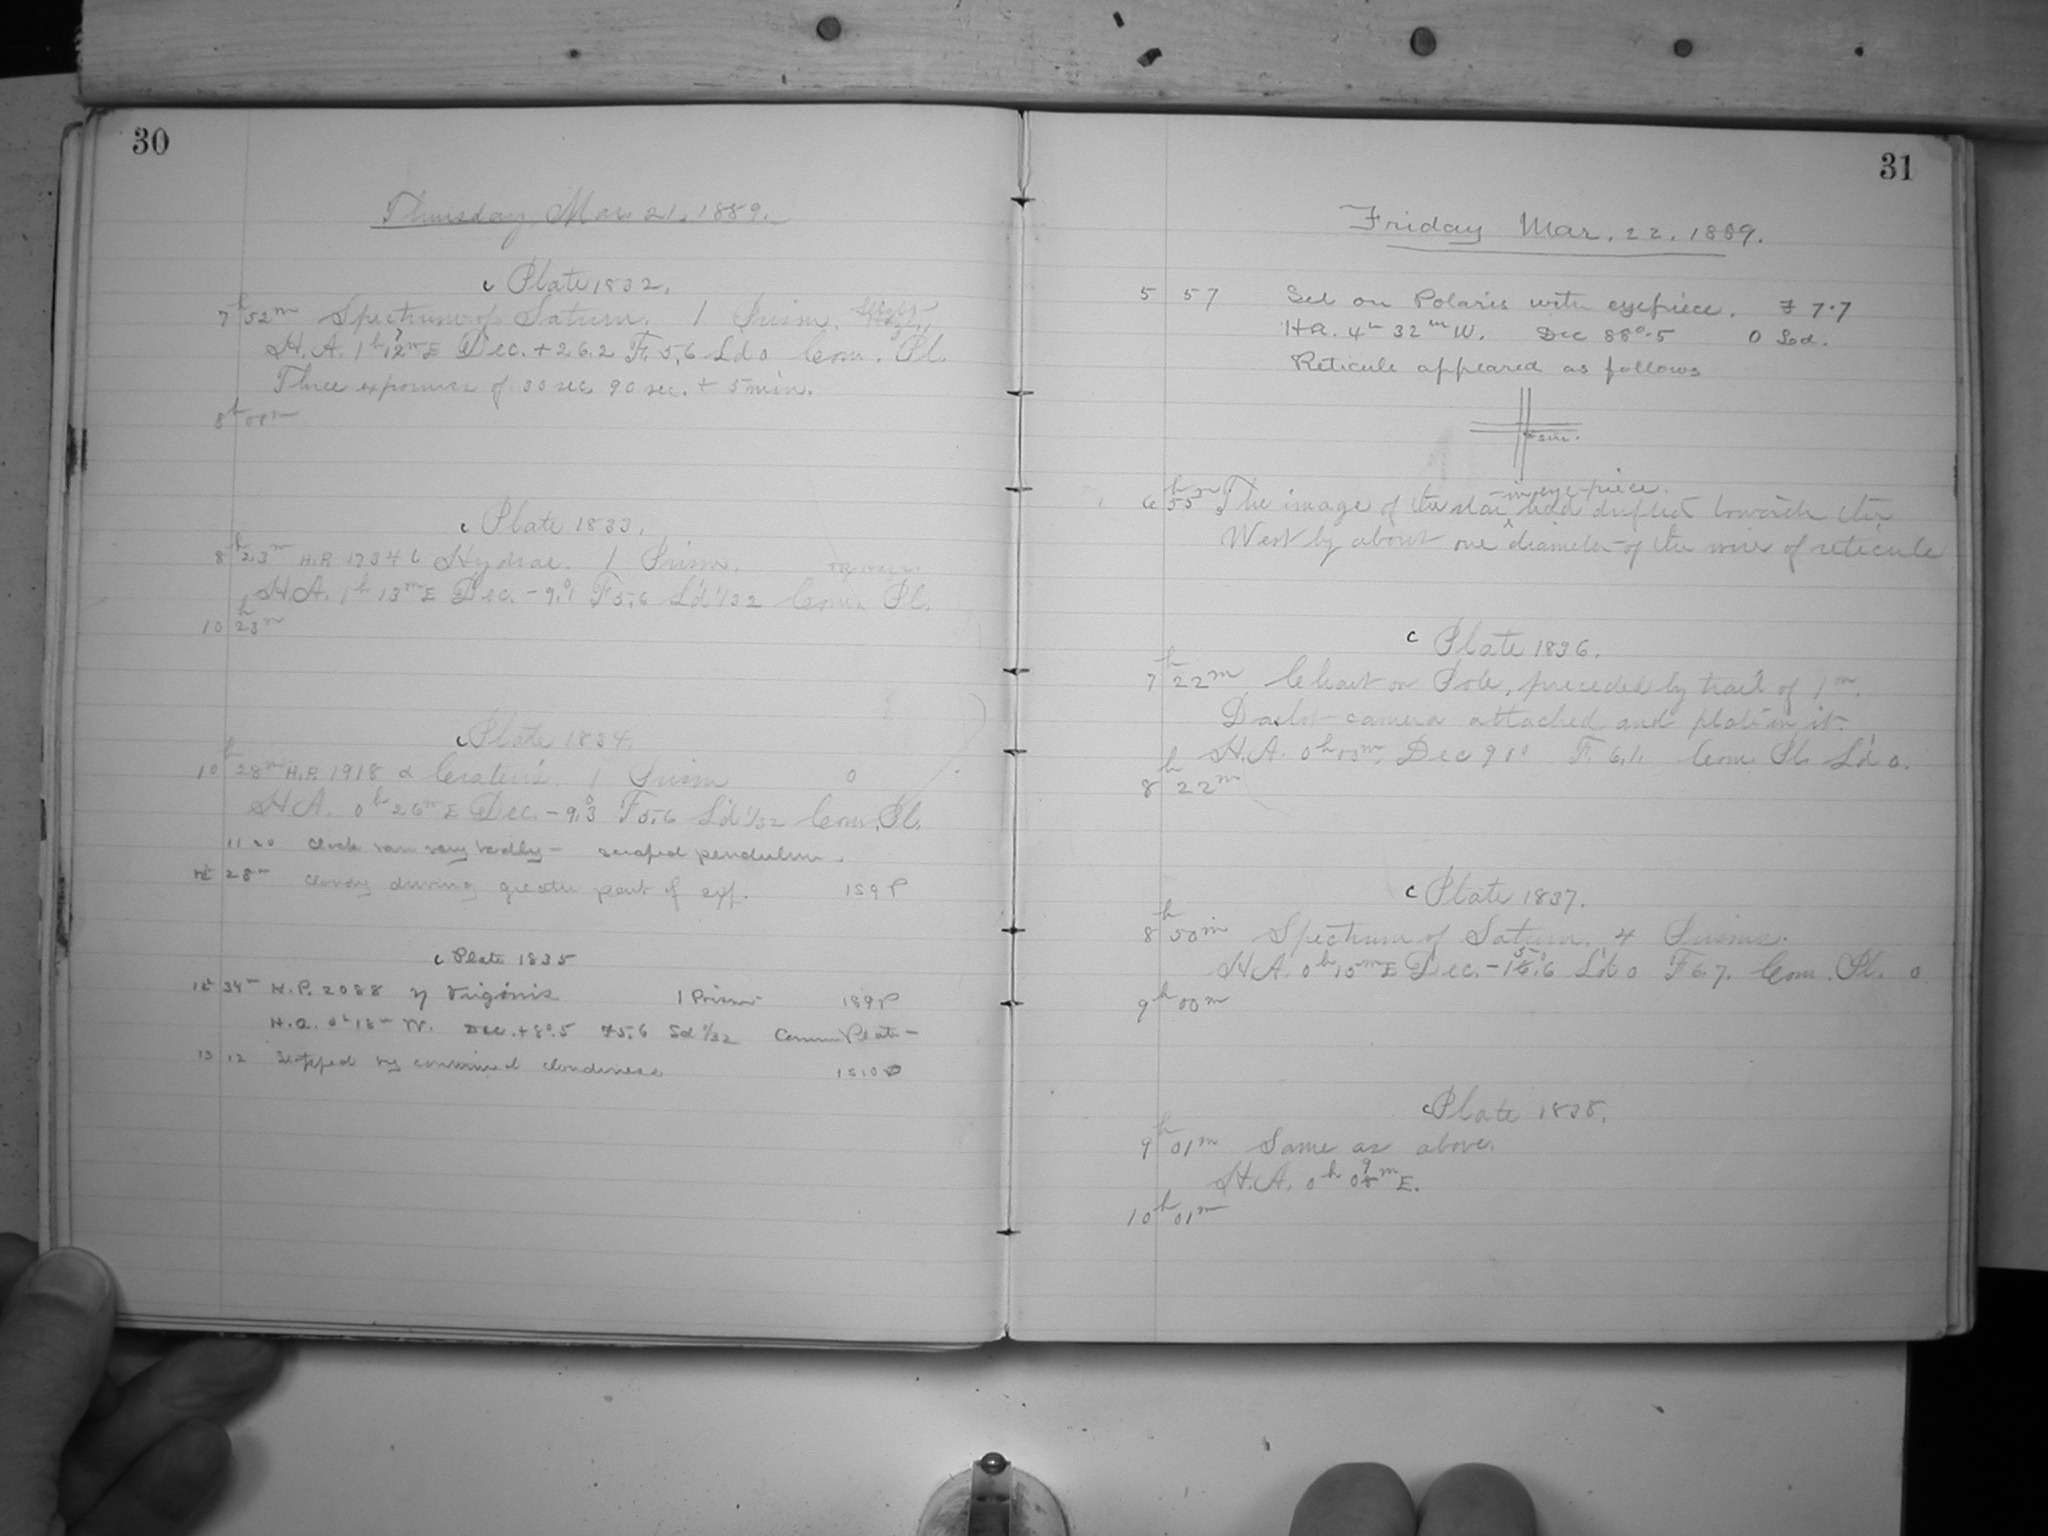 30
Thursday, Mar. 21, 1889.
c Plate 1832.
7h 52m Spectrum of Saturn. 1 Prism.
H.A. 1h 12m E Dec. +26.2 F. 5.6 Ld 0 Com. Pl.
Three exposures of 30 sec. 90 sec. + 5 min.
8h 08m
c Plate 1833.
8h 23m H.P. 1734 Hydrae. 1 Prism.
H.A. 1h 13m E Dec. -9.°1 F 5.6 L'd 1/32 Com. Pl.
10h 23m
c Plate 1834.
10h 28m H.P. 1918 α Crateris 1 Prism 0
H.A. 0h 26m E Dec. -9.°3 F 5.6 L'd 1/32 Com. Pl.
11 20 Clock ran very badly - scraped pendulum.
12 28m Cloudy during greater part of exp. 1S9P
c Plate 1835
12 34m H.P. 2088 η Virginis 1 Prism 1S9P
H.A. 0h 18m W. Dec. +8°.5 F5.6 Sd 1/32 Common Plate
13 12 Stopped by continued cloudiness 1S10P
31
Friday Mar. 22. 1889.
5 57 Set on Polaris with eyepiece. F 7.7
H.A. 4h 32m W. Dec 88°.5 0 Sd.
Reticule appeared as follows
star.
in eye-piece.
6h 55m The image of the star had drifted towards the
West by about one diameter of the wire of reticule
c Plate 1836.
7h 22m Chart on Pole, preceded by trail of 1m.
Dallm camera attached and plate in it.
H.A. 0h 00m, Dec 90° F. 6.1. Com. Pl. L'd 0.
8h 22m
c Plate 1837.
8h 50m Spectrum of Saturn. 4 Prisms.
H.A. 0h 15m E Dec. -15.°6 L'd 0 F 6.7. Com. Pl. 0
9h 00m
c Plate 1838.
9h 01m Same as above.
H.A. 0h 09m E.
10h 01m